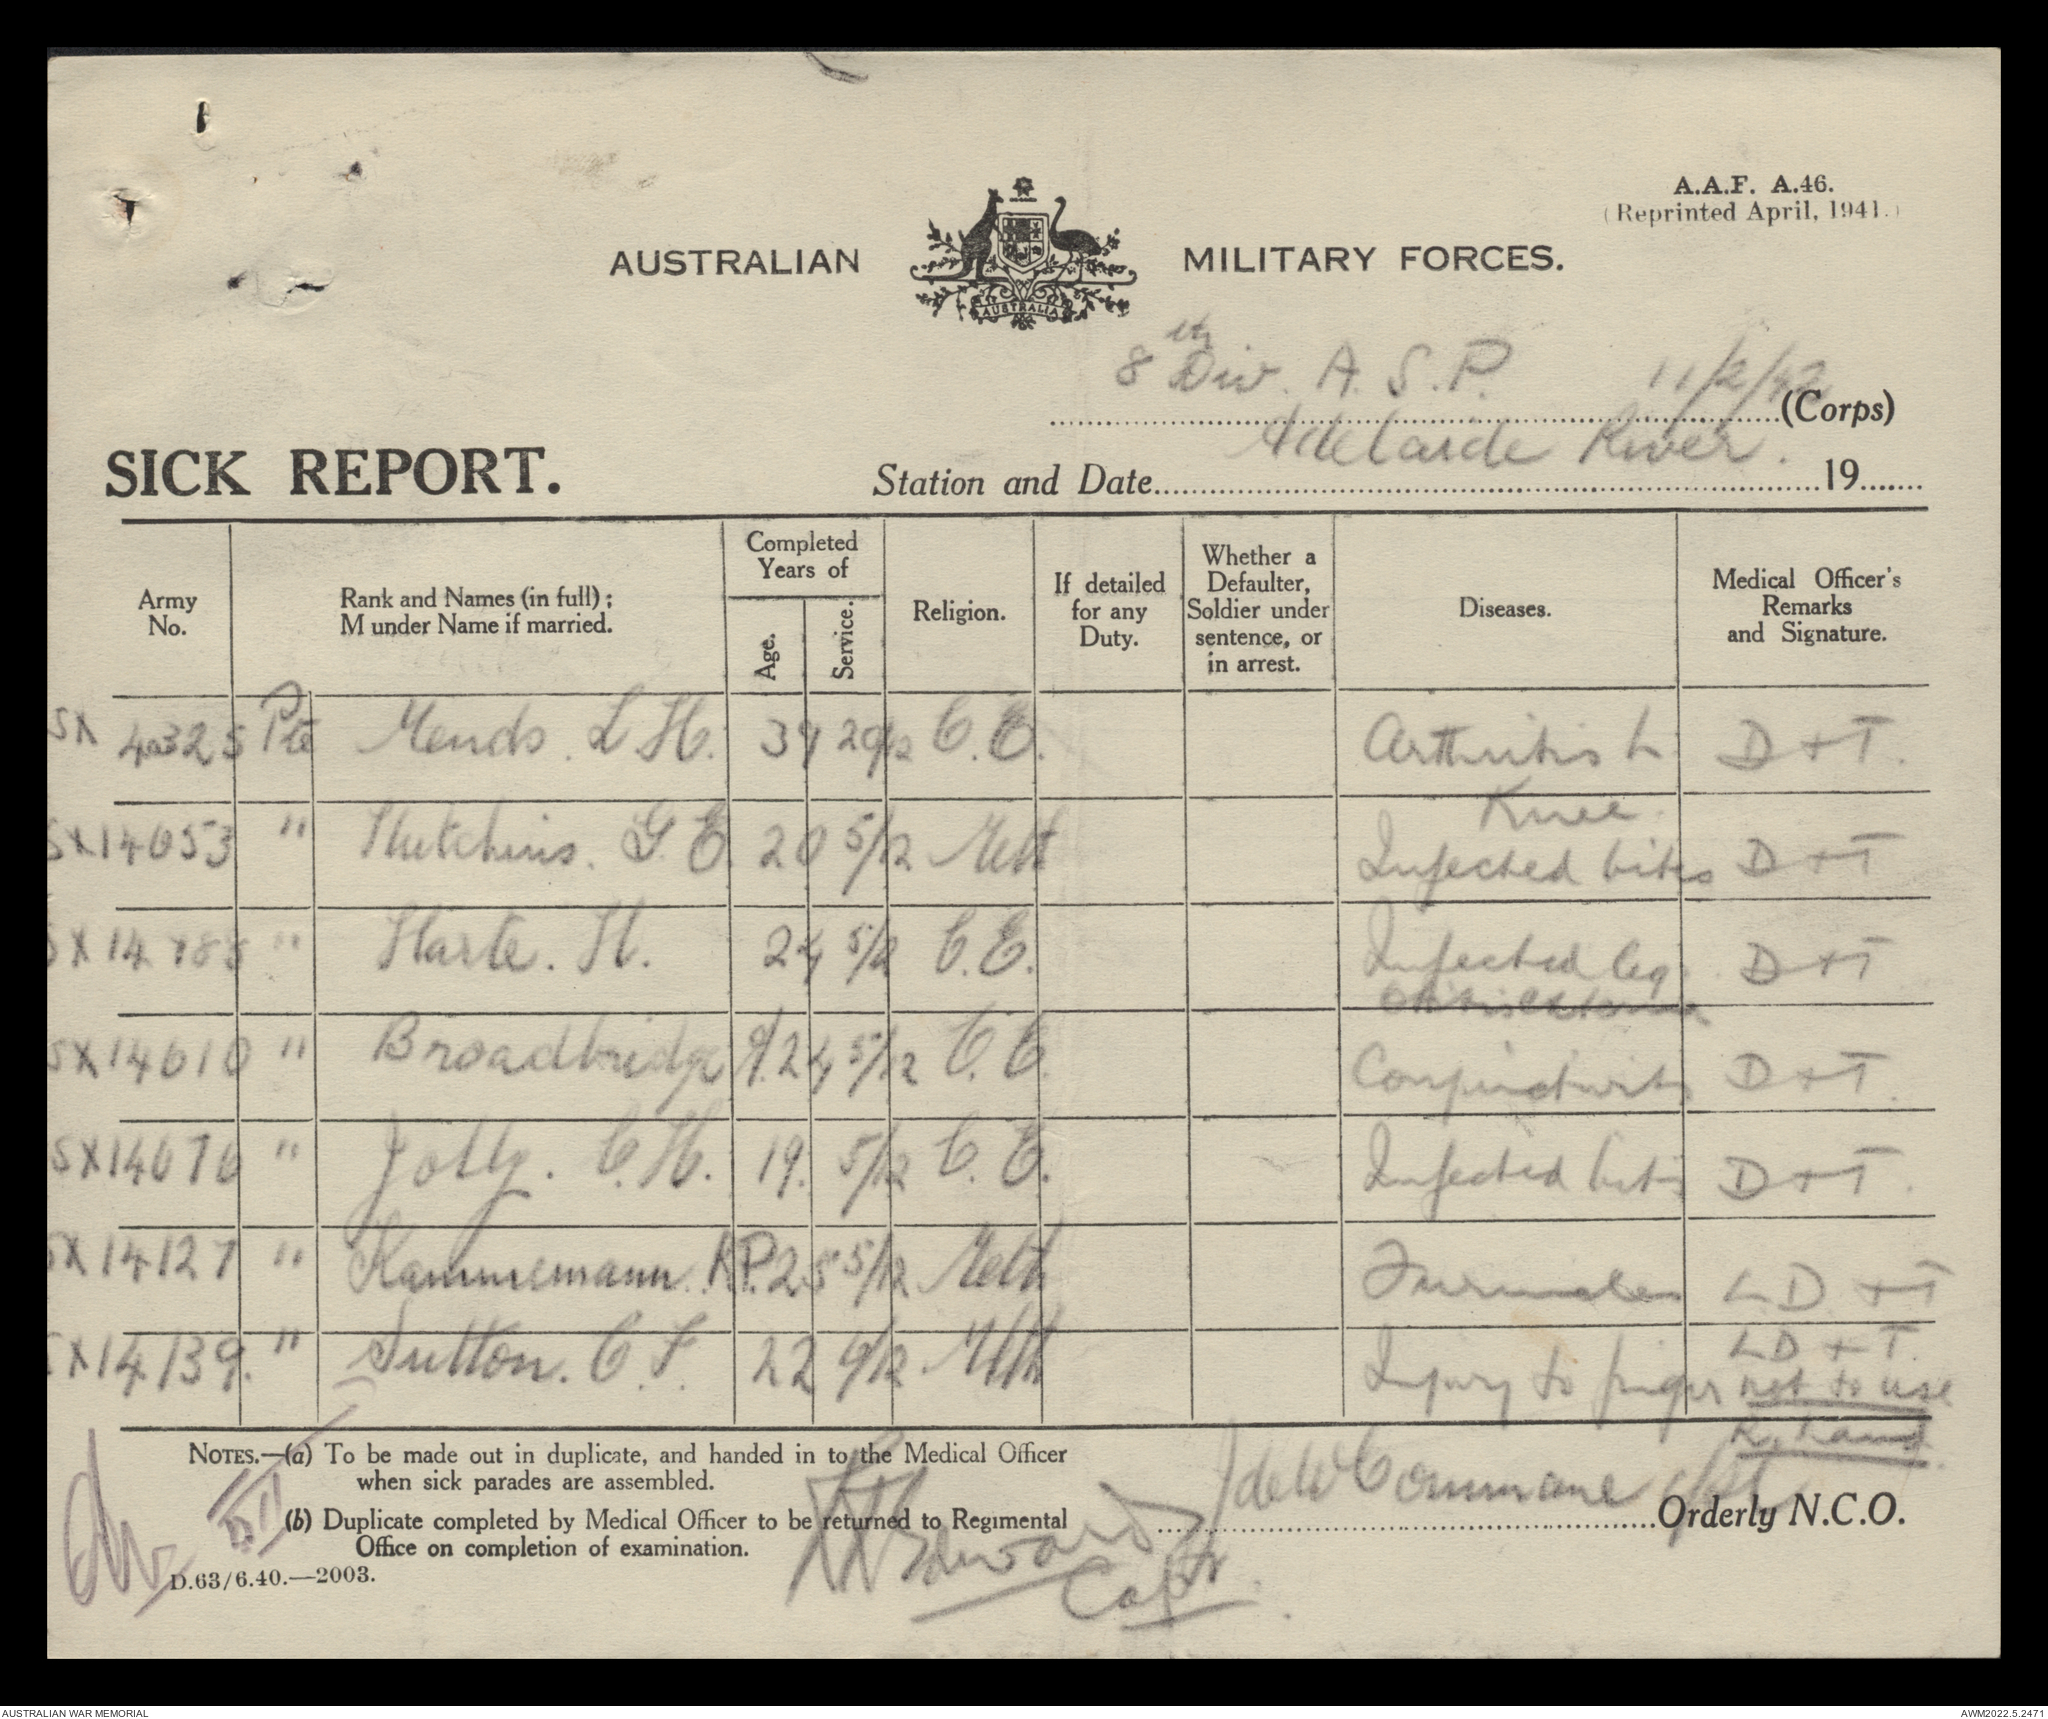 A.A.F. A.46.
(Reprinted April, 1941.)
AUSTRALIAN MILITARY FORCES.
AUSTRALIA
8th Div. A.S.P. 11/2/42
(Corps)
Adelaide River.
SICK REPORT. Station and Date 19
Army No. Rank and Names (in full); M under Name if married. Completed Years of Age. Service. Religion. If detailed for any Duty. Whether a Defaulter, Soldier under sentence, or in arrest. Diseases. Medical Officer's Remarks and Signature.
SX 4325 Pte Mends. L.H. 39 29/12 C.E. Arthritis L Knee. D+T.
SX14653 " Hutchins. G.E. 20 5/12 Meth Infected bites D+T
SX14788 " Harte. H. 24 5/12 C.E. Infected leg Otitis externa D+T
SX14610 " Broadbridge 24 5/12 C.E. Conjunctivitis D+T.
SX14676 " Jolly. C.H. 19. 5/12 C.E. Infected bites D+T.
SX14127 " Kammermann. K.P. 25 5/12 Meth Furuncles LD+T
SX14139. " Sutton. C.F. 22 9/12 Meth Injury to finger LD+T. not to use R. hand.
NOTES.—(a) To be made out in duplicate, and handed in to the Medical Officer
when sick parades are assembled.
(b) Duplicate completed by Medical Officer to be returned to Regimental
Office on completion of examination.
Orderly N.C.O.
Edwards
Capt.
D.63/6.40.—2003.
AUSTRALIAN WAR MEMORIAL
AWM2022.5.2471